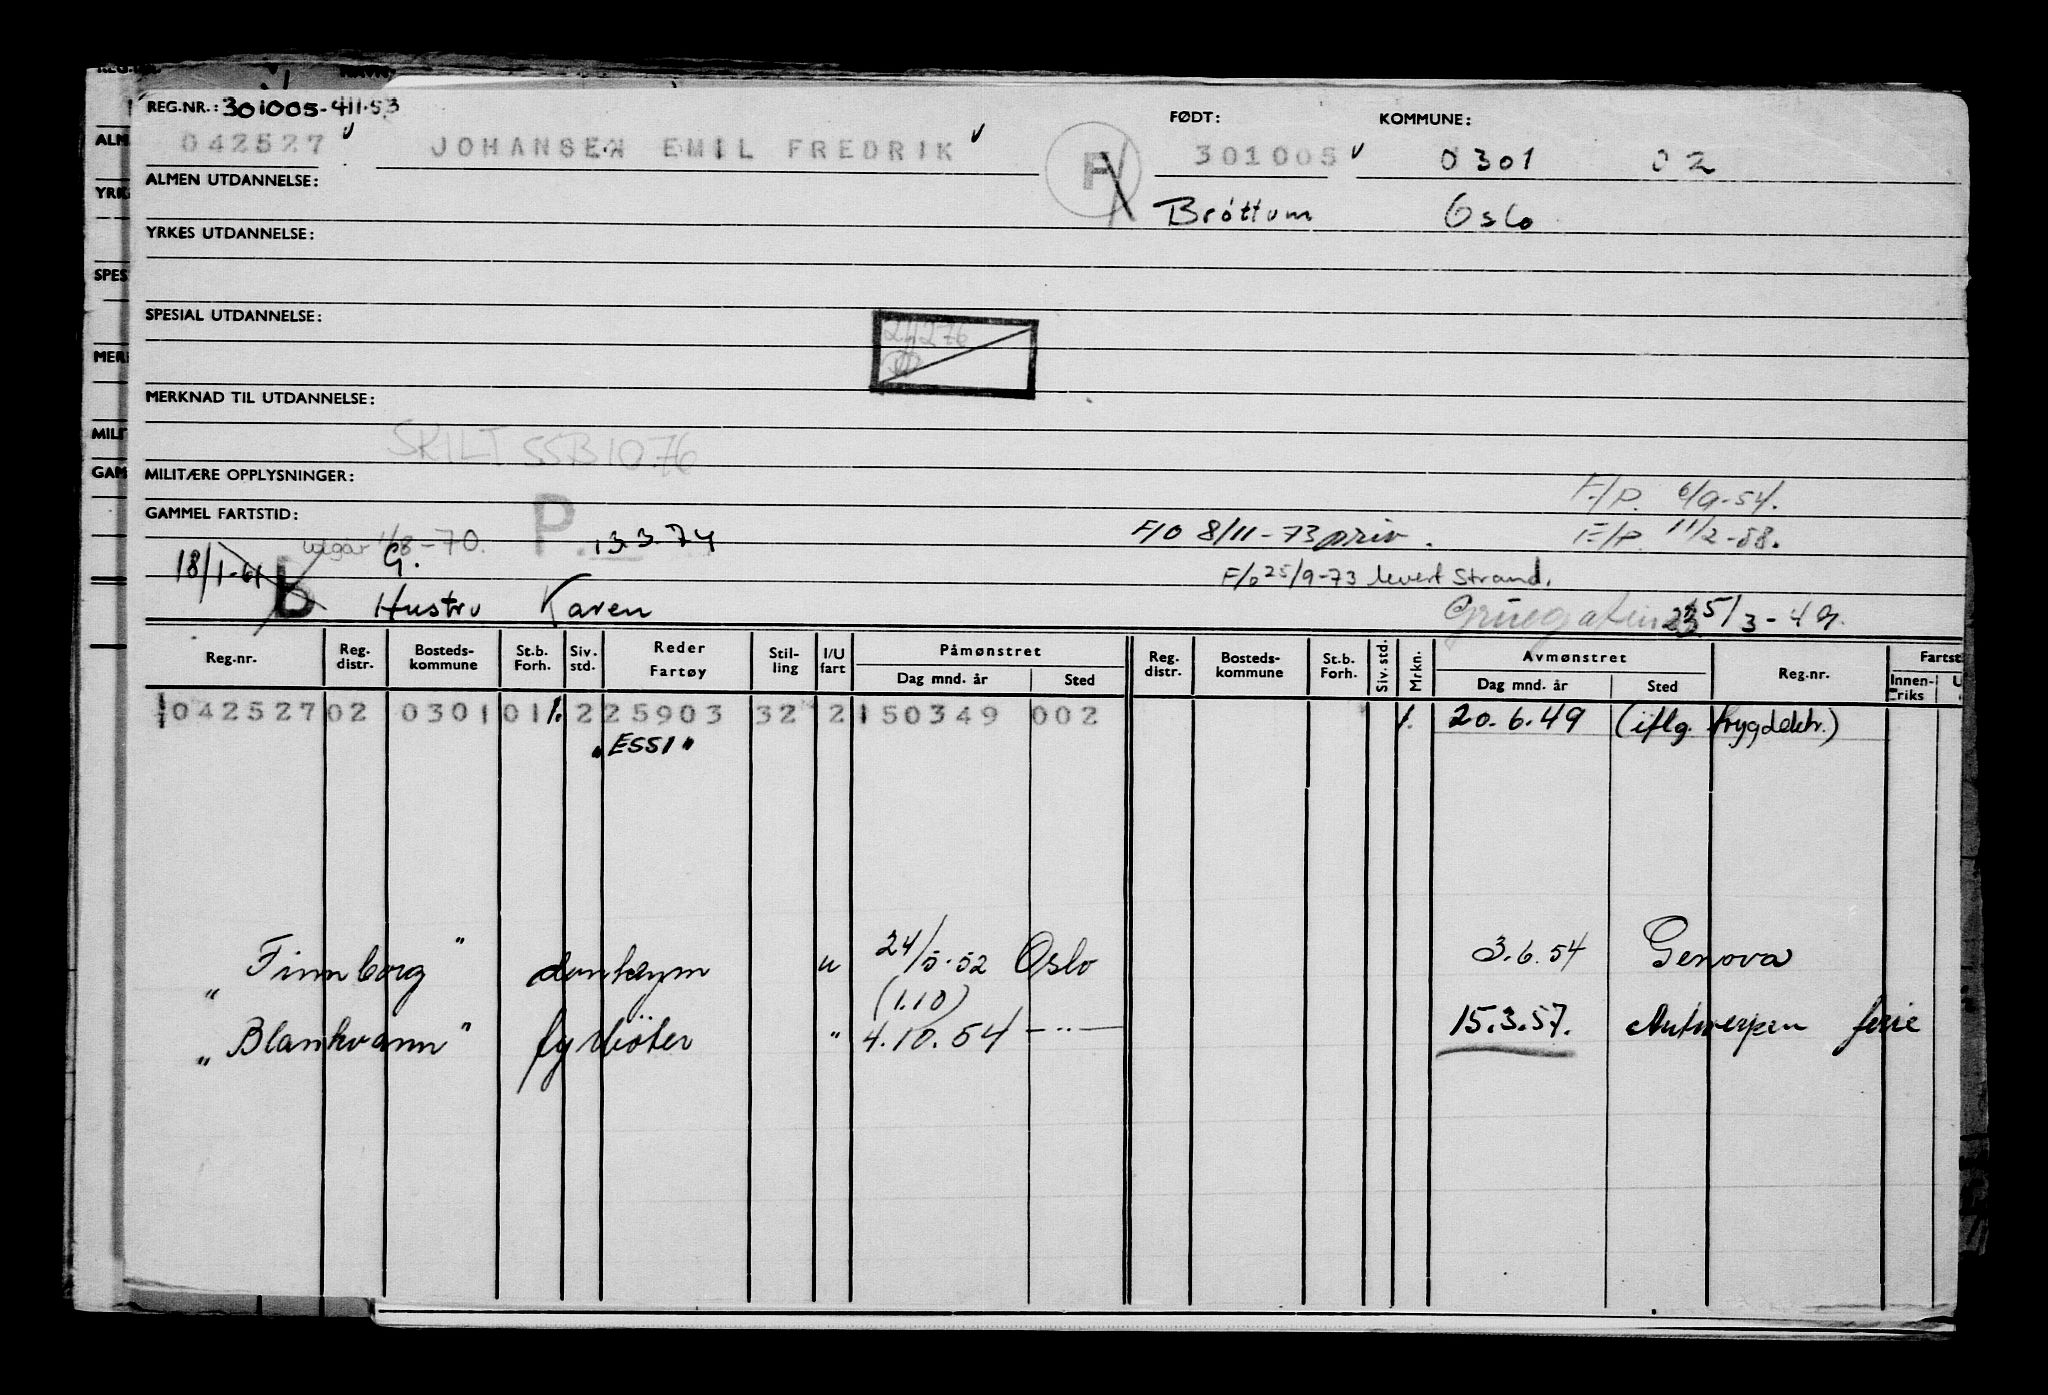 REG.NR.: 301005-411.53
FØDT: KOMMUNE:
042527 JOHANSEN EMIL FREDRIK 301005 0301 02
ALMEN UTDANNELSE:
Brøttum Oslo
YRKES UTDANNELSE:
SPESIAL UTDANNELSE:
MERKNAD TIL UTDANNELSE:
SKILT SSB 10.76
MILITÆRE OPPLYSNINGER:
F/P. 6/9-54.
GAMMEL FARTSTID:
P. 13.3.74 F/O 8/11-73 priv. F/P. 11/2-58.
utgår 1/8-70.
18/1-61 b G. F/o 25/9-73 levert Strand.
Hustru Karen
Grüegaten 23 5/3-49.
Reg.nr. Reg. distr. Bosteds-kommune St.b. Forh. Siv. std. Reder Fartøy Stil-ling I/U fart Påmønstret Dag mnd. år Sted Reg. distr. Bosteds-kommune St.b. Forh. Siv. std. Mrkn. Avmønstret Dag mnd. år Sted Reg.nr. Fartst Innen-riks U
042527 02 0301 01 1. 2 25903 32 2 150349 002 1. 20.6.49 (iflg. trygdektr.)
"ESSI"
"Finnborg" donkeym u 24/5-52 Oslo 3.6.54 Genova
(1.10)
"Blankvann" fyrbøter " 4.10.54 —"— 15.3.57. Antwerpen ferie